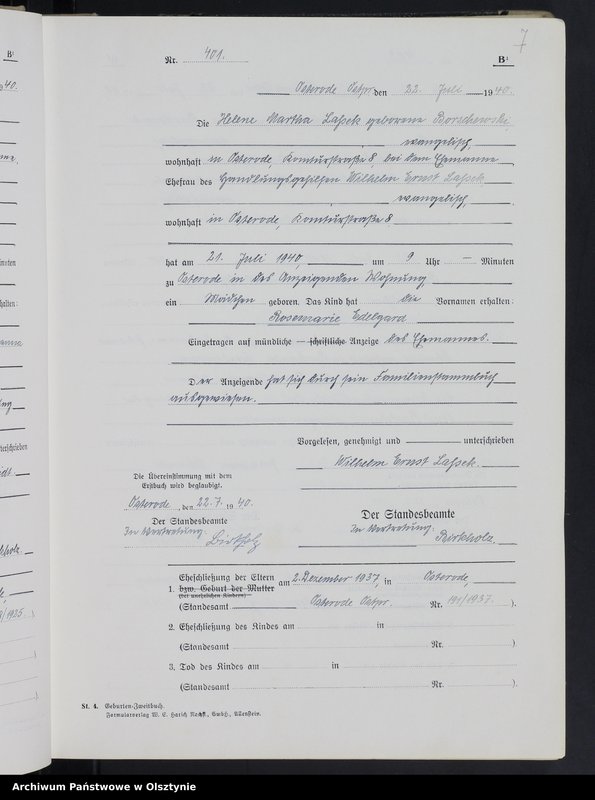 7
Nr. 401. B²
Osterode Ostpr. den 22. Juli 1940.
Die Helene Martha Lassek geborene Borschewski,
evangelisch,
wohnhaft in Osterode, Komturstraße 8, bei dem Ehemanne,
Ehefrau des Handlungsgehilfen Wilhelm Ernst Lassek,
evangelisch,
wohnhaft in Osterode, Komturstraße 8
hat am 21. Juli 1940, um 9 Uhr — Minuten
zu Osterode in des Anzeigenden Wohnung
ein Mädchen geboren. Das Kind hat die Vornamen erhalten:
Rosemarie Edelgard
Eingetragen auf mündliche — schriftliche Anzeige des Ehemannes.
Der Anzeigende hat sich durch sein Familienstammbuch
ausgewiesen.
Vorgelesen, genehmigt und unterschrieben
Wilhelm Ernst Lassek.
Die Übereinstimmung mit dem
Erstbuch wird beglaubigt.
Osterode, den 22.7. 1940.
Der Standesbeamte
In Vertretung.
Birkholz
Der Standesbeamte
In Vertretung.
Birkholz.
Eheschließung der Eltern am 2. Dezember 1937, in Osterode,
1. bzw. Geburt der Mutter
(bei unehelichen Kindern)
(Standesamt Osterode Ostpr. Nr. 191/1937. ).
2. Eheschließung des Kindes am in
(Standesamt Nr. )
3. Tod des Kindes am in
(Standesamt Nr. ).
St. 4. Geburten-Zweitbuch.
Formularverlag W. E. Harich Nachf., GmbH., Allenstein.
Archiwum Państwowe w Olsztynie